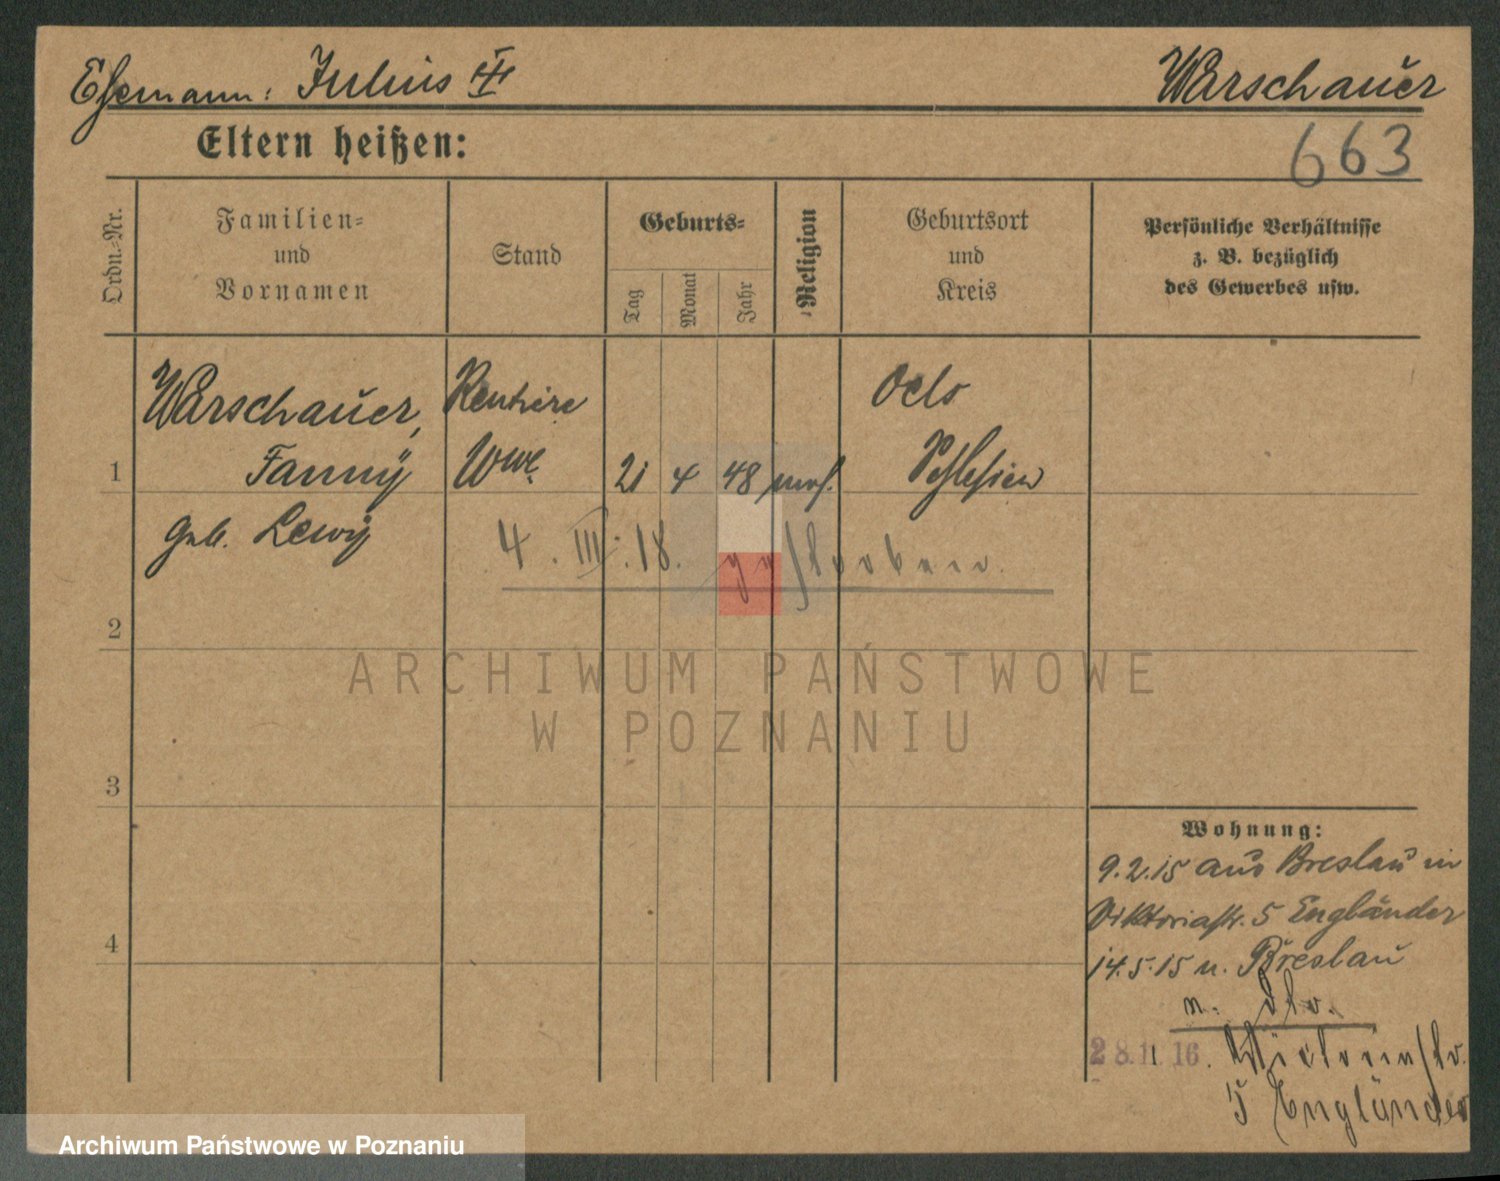 Ehemann: Julius
Warschauer
Eltern heißen:
663
Ordn.-Nr.
Familien-
und
Vornamen
Stand
Geburts-
Tag
Monat
Jahr
Religion
Geburtsort
und
Kreis
Persönliche Verhältnisse
z. B. bezüglich
des Gewerbes usw.
Warschauer, Rentiere Oels
1 Fanny Wwe. 21 4 48 mos. Schlesien
geb. Lewy
4. III. 18. gestorben.
2
ARCHIWUM PAŃSTWOWE
W POZNANIU
3
Wohnung:
9.2.15 aus Breslau in
Viktoriastr. 5 Engländer
4
14.5.15 n. Breslau
n.
28.11.16. Victoriastr.
5 Engländer
Archiwum Państwowe w Poznaniu